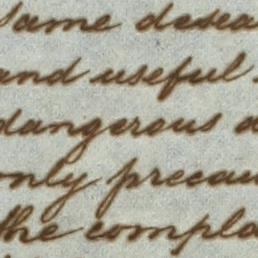 same disea
and useful
dangerous a
only precau
the compla